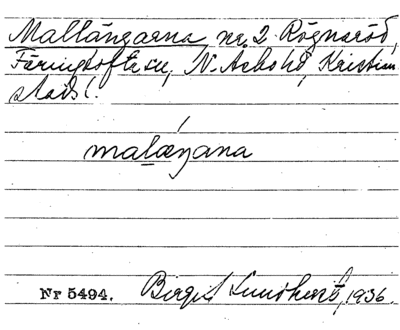 Mallängarna, nr. 2 Rögnaröd,
Färingtofta sn, N. Åsbo hd, Kristian
stads l.
malæŋana
Nr 5494. Birgit 1936.